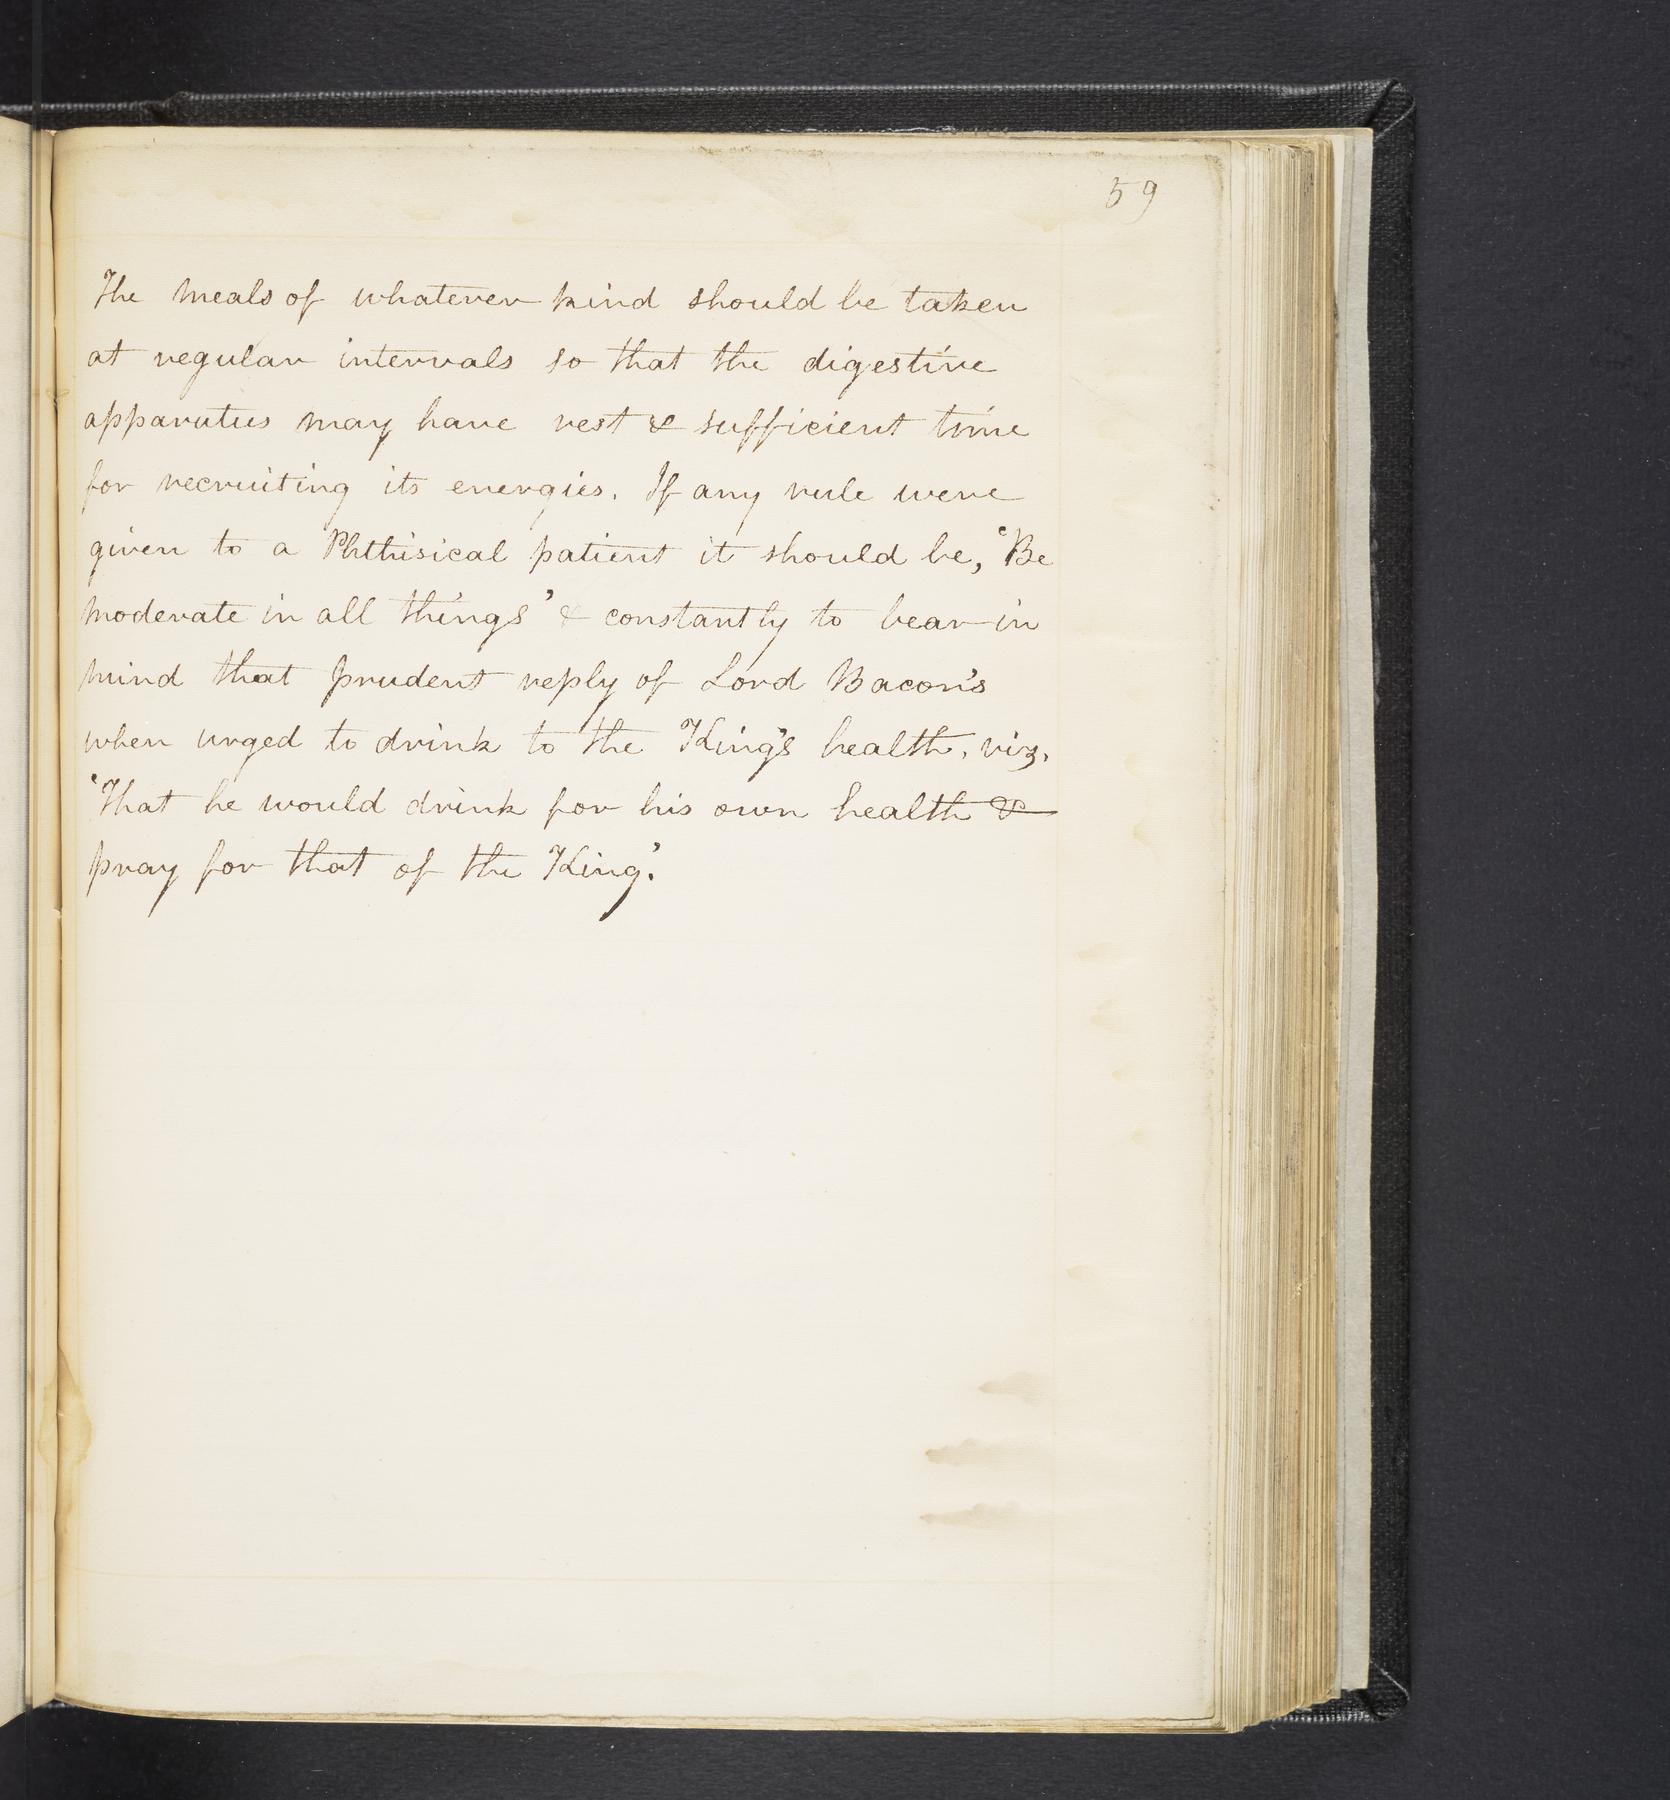 59
The meals of whatever kind should be taken
at regular intervals so that the digestive
apparatus may have rest & sufficient time
for recruiting its energies. If any rule were
given to a Phthisical patient it should be, 'Be
moderate in all things' & constantly to bear in
mind that prudent reply of Lord Bacon's
when urged to drink to the King's health, viz.
'That he would drink for his own health &
pray for that of the King'.